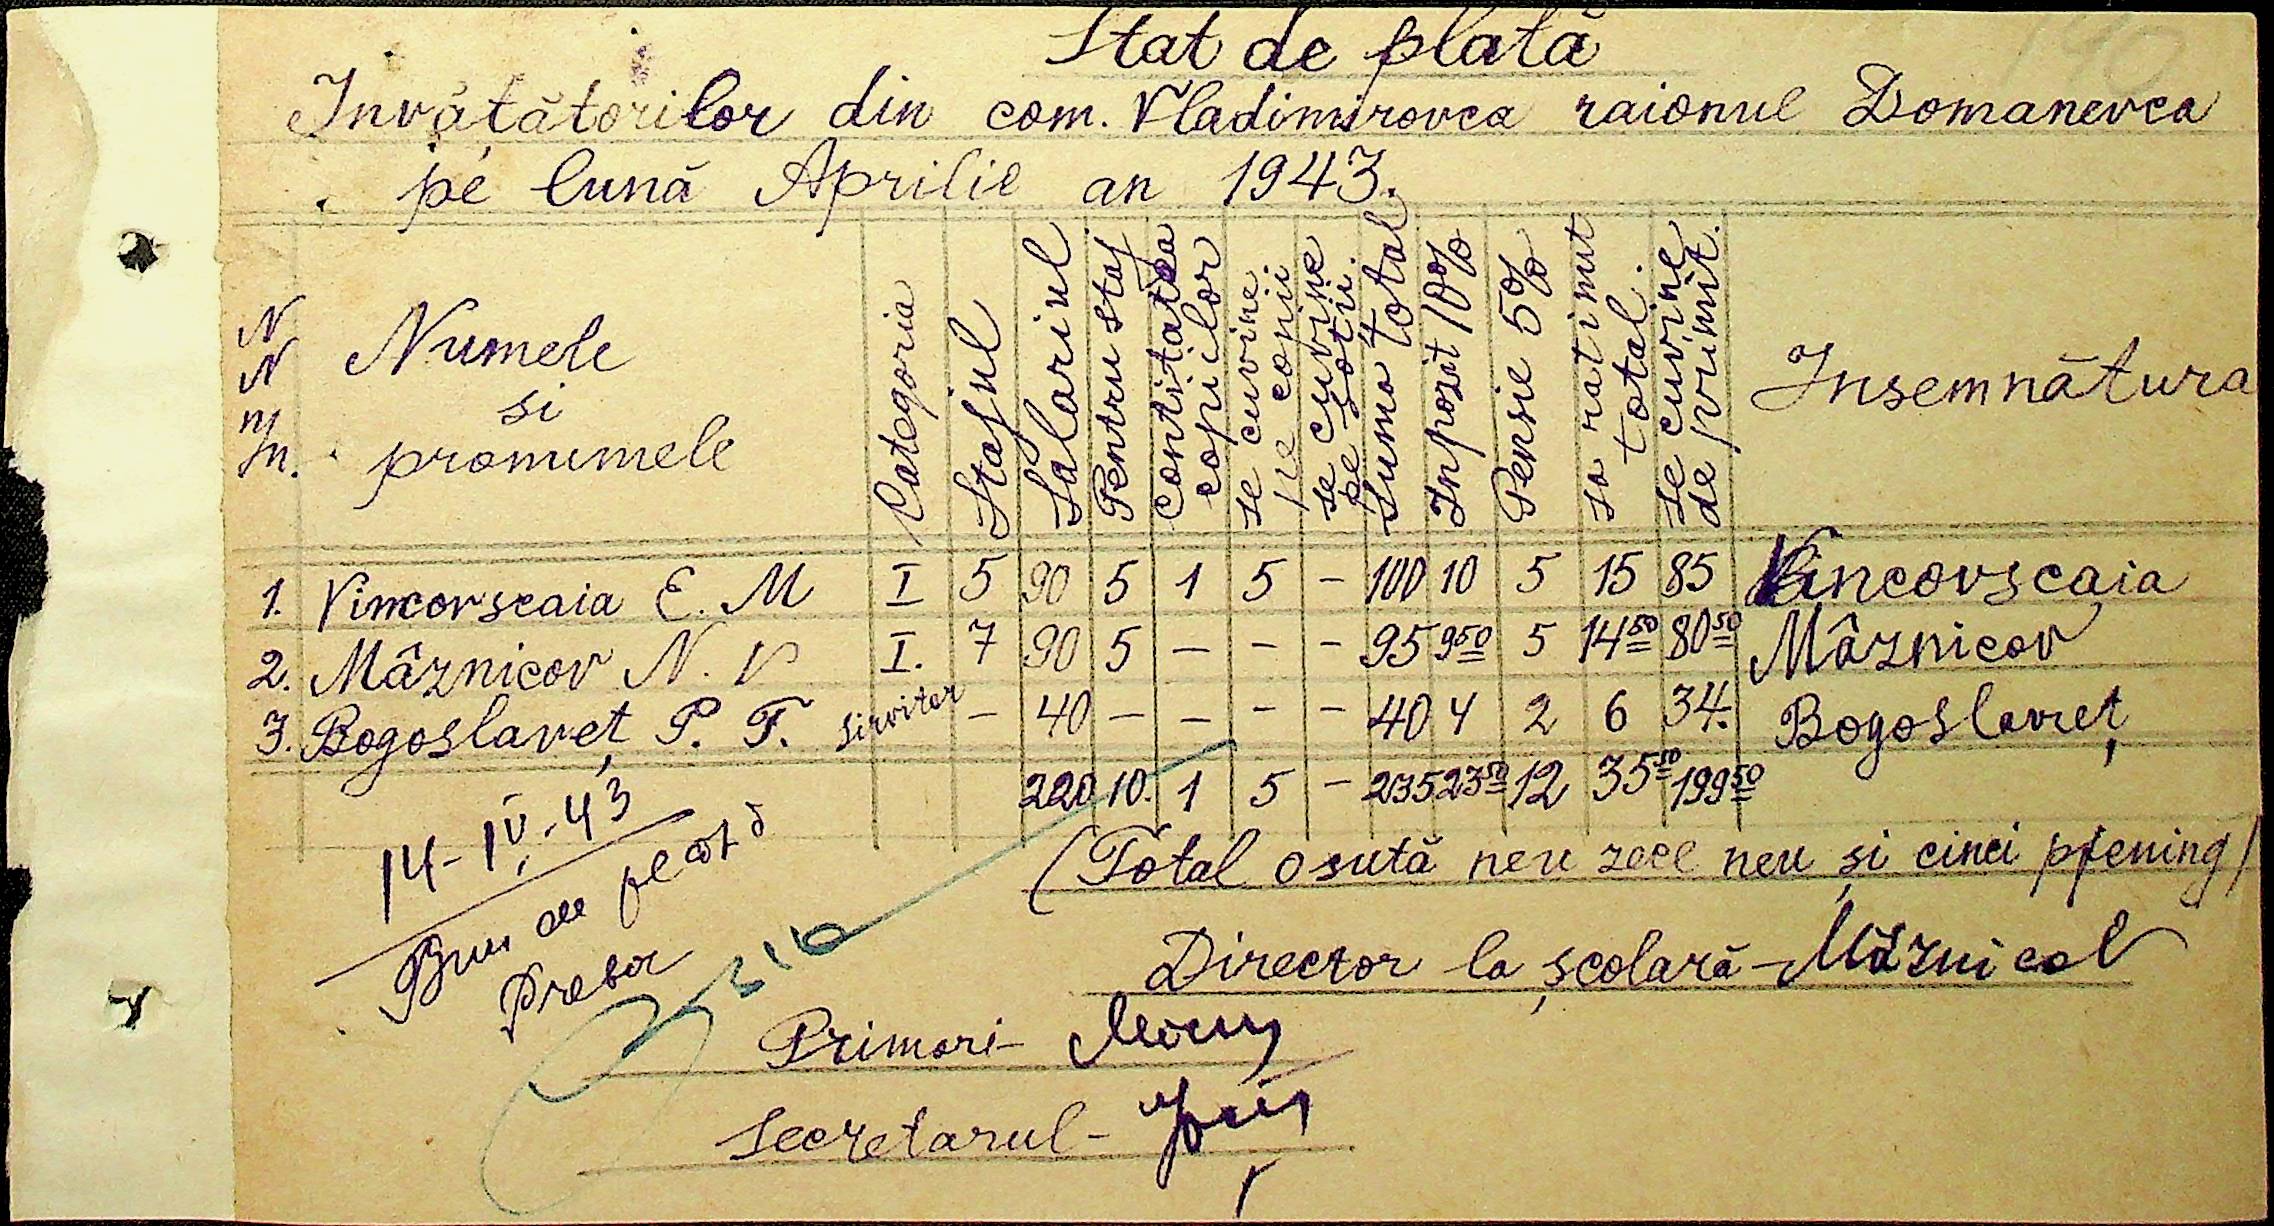 190
Stat de plată
Invățătorilor din com. Vladimirovca raionul Domanevca
pe lună Aprilie an 1943.
N N m/m. Numele si pronumele Categoria Stajul Salariul Pentru staj Contitatea copiilor se cuvine pe copii se cuvine pe soții. Suma total Impozit 10% Pensie 5% sa ratinut total. Se cuvine de primit. Insemnătura
1. Vincovscaia E. M I 5 90 5 1 5 - 100 10 5 15 85 Vincovscaia
2. Mâznicov N. V I. 7 90 5 - - - 95 950 5 1450 8050 Mâznicov
3. Bogoslaveț P. F. sirvitor - 40 - - - - 40 4 2 6 34. Bogoslaveț
220 10. 1 5 - 235 2350 12 3550 19950
14-IV-43
Bun de plată
Pretor
(Total osută neu zece neu și cinci pfening)
Director la școlară - Mâznicov
Primari-
Secretarul-